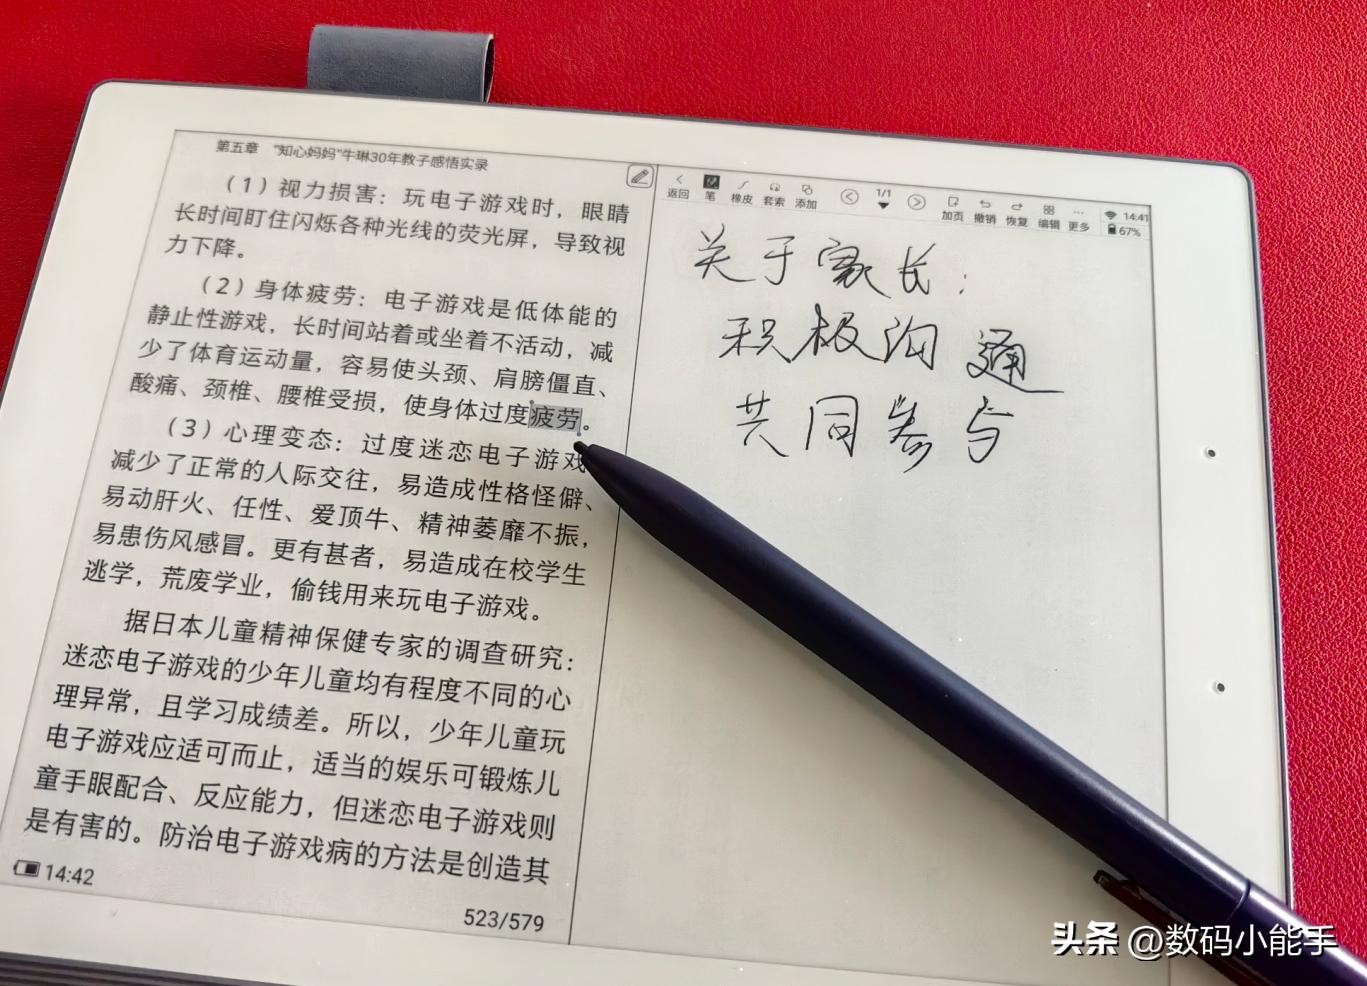 第五章 "知心妈妈"牛琳30年教子感悟实录
（1）视力损害：玩电子游戏时，眼睛
长时间盯住闪烁各种光线的荧光屏，导致视
力下降。
（2）身体疲劳：电子游戏是低体能的
静止性游戏，长时间站着或坐着不活动，减
少了体育运动量，容易使头颈、肩膀僵直、
酸痛、颈椎、腰椎受损，使身体过度疲劳。
（3）心理变态：过度迷恋电子游戏
减少了正常的人际交往，易造成性格怪僻、
易动肝火、任性、爱顶牛、精神萎靡不振，
易患伤风感冒。更有甚者，易造成在校学生
逃学，荒废学业，偷钱用来玩电子游戏。
据日本儿童精神保健专家的调查研究：
迷恋电子游戏的少年儿童均有程度不同的心
理异常，且学习成绩差。所以，少年儿童玩
电子游戏应适可而止，适当的娱乐可锻炼儿
童手眼配合、反应能力，但迷恋电子游戏则
是有害的。防治电子游戏病的方法是创造其
14:42
523/579
返回 笔 橡皮 套索 添加 1/1 加页 撤销 恢复 编辑 更多 14:41 67%
关于家长：
积极沟通
共同参与
头条 @数码小能手